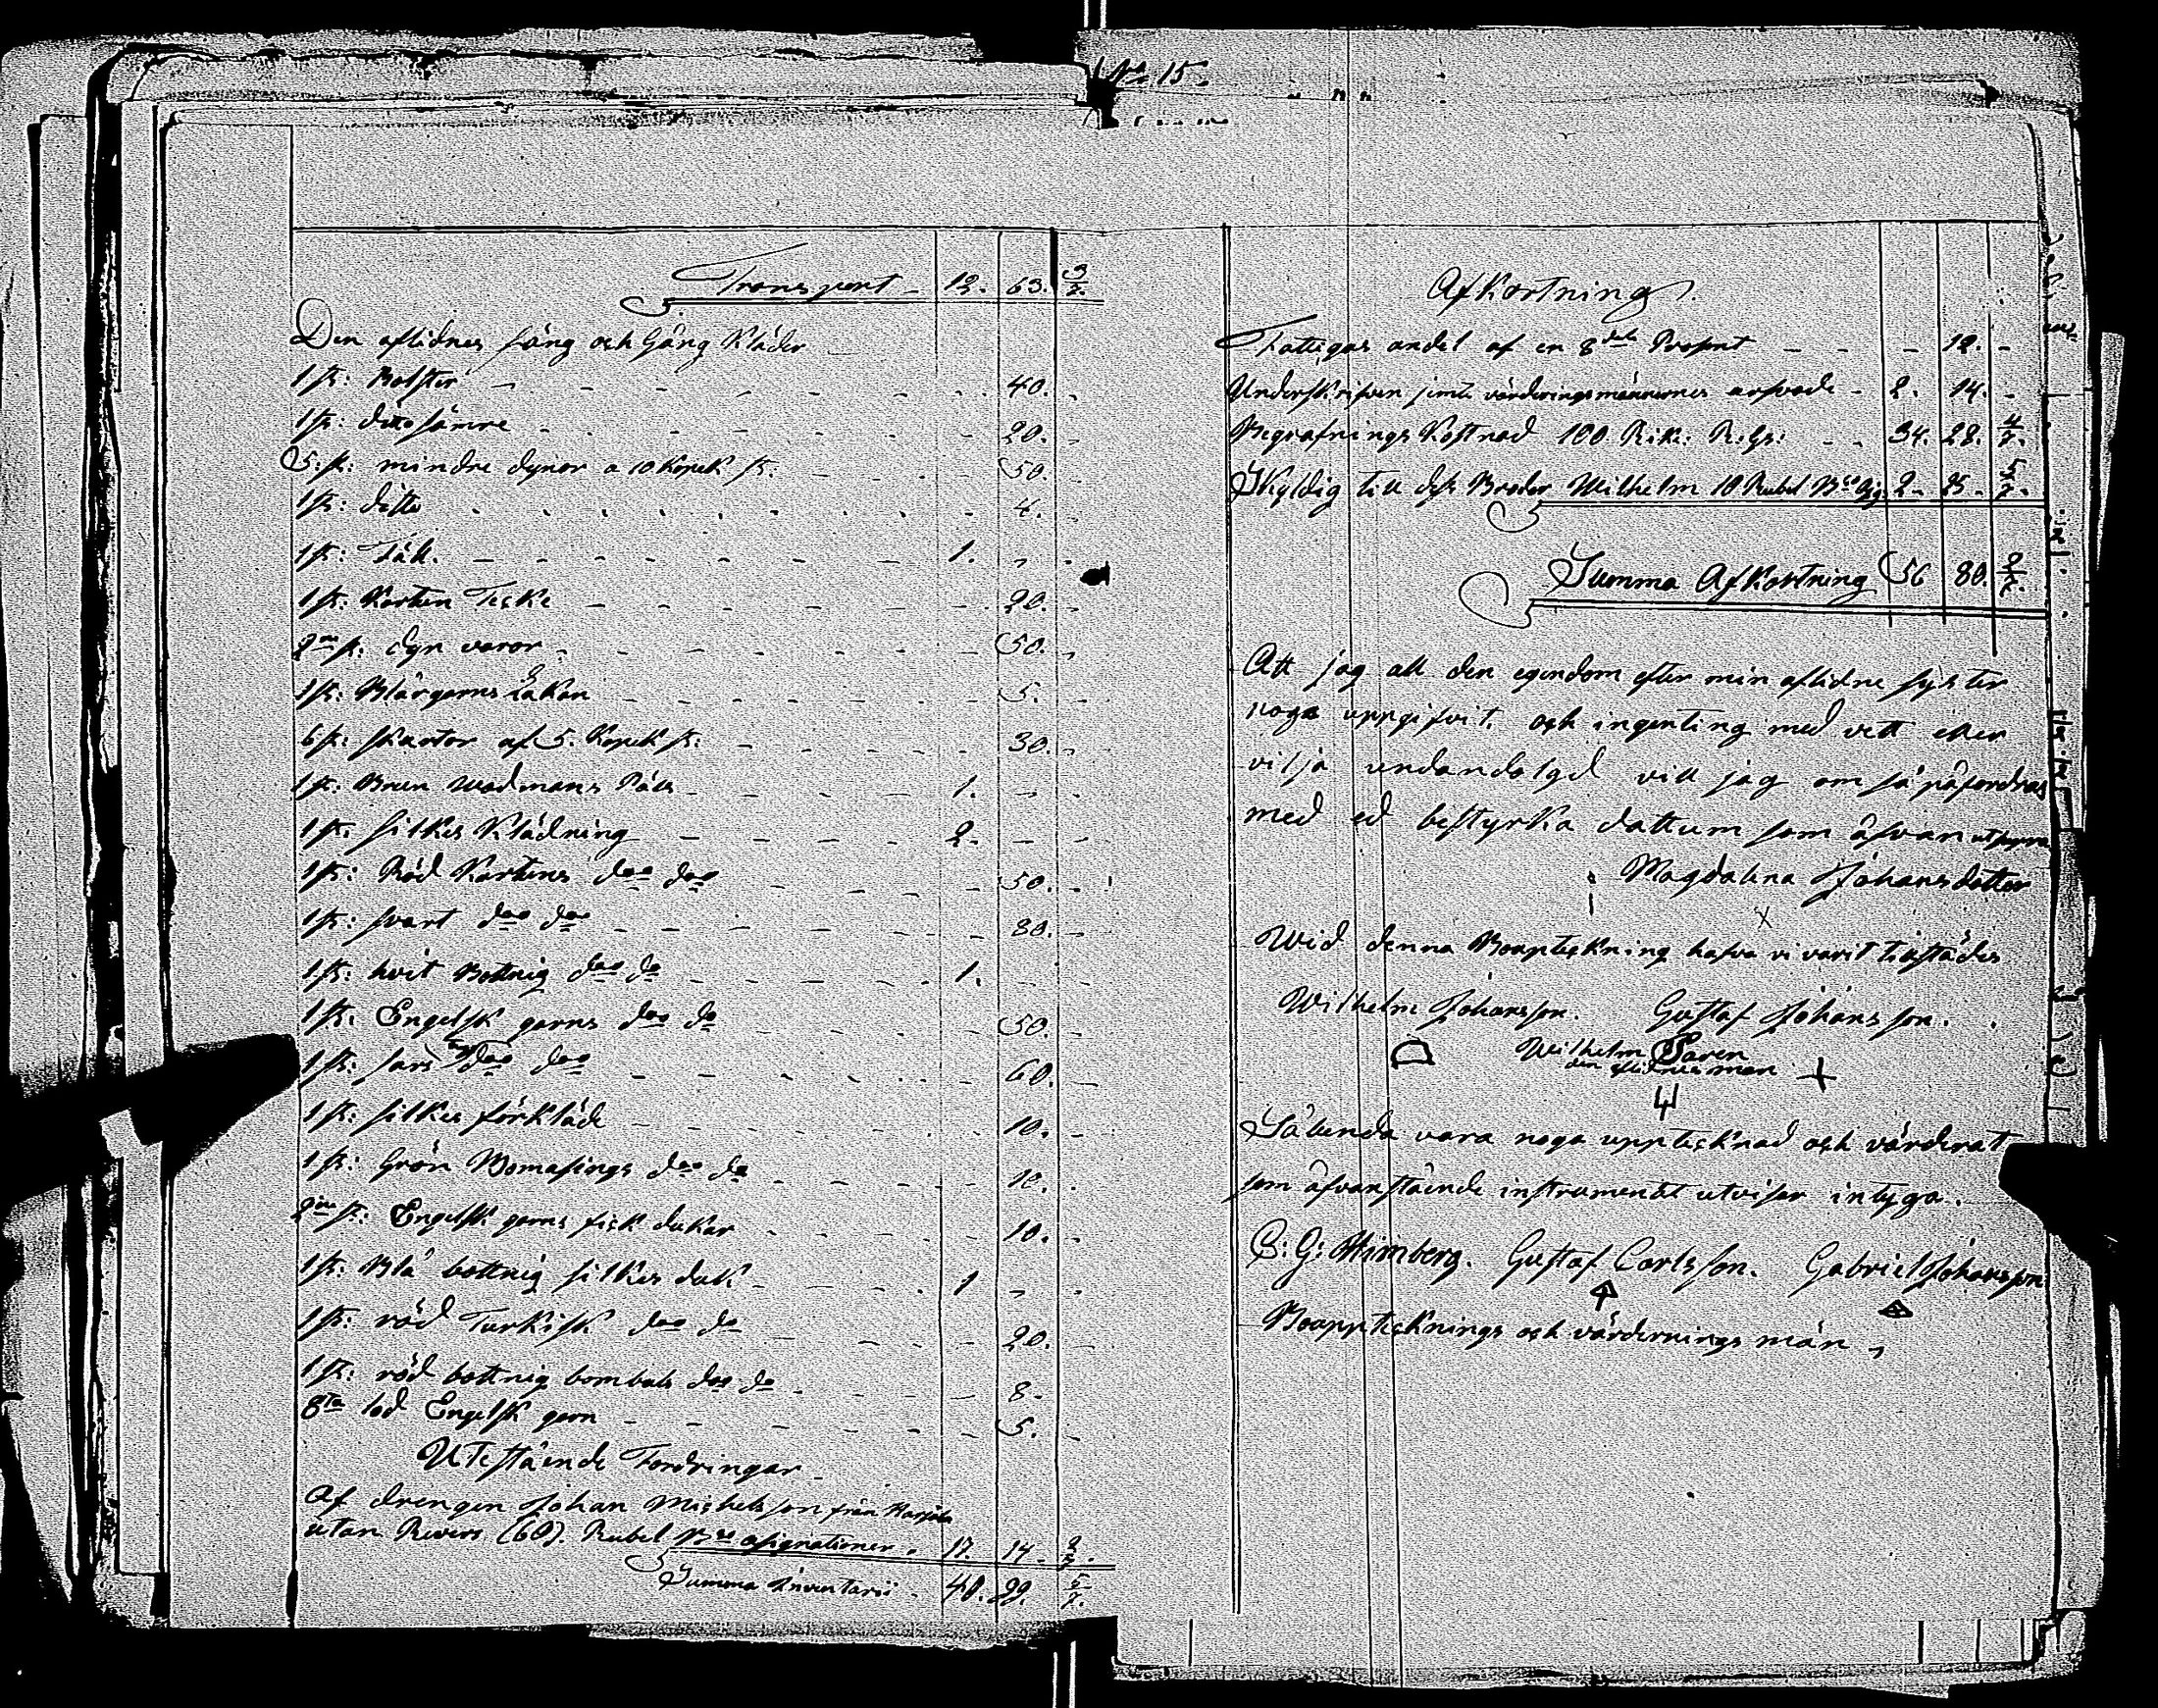 No 15.
Transport - 12. 63. 3/7.
Den aflidnes säng och Gång Kläder
1 st: Bolster 40.
1 st: ditto sämre 20.
5. st: mindre dynor a 10 Kopek st: 50.
1 st: ditto 4.
1 st: Fäll. 1.
1 st: Kartun Täcke 20.
2ne st: dyn varor 50.
1 st: Blårgarns Lakan 5.
6 st: skartor af 5. Kopek st: 30.
1 st: Brun Wadmans Päls 1.
1 st: silkes Klädning 2.
1 st: Röd Kartuns do do 50.
1 st: svart do do 80.
1 st: hvit Bottnig do do 1.
1 st: Engelsk garns do do 50.
1 st: sars do do 60.
1 st: silkes förkläde 10.
1 st: Grön Bomasings do do 10.
2ne st: Engelsk garns fick dukar 10.
1 st: Blå bottnig silkes duk 1
1 st: röd Turkisk do do 20.
1 st: röd bottnig bombals do do 8.
8ta lod Engelsk garn 5.
Utestående Fordringar
Af drengen Johan Michelsson från
utan Revers (60). Rubel Bco assignationer. 17. 14. 2/7.
Summa Inventarii 40. 29. 5/7.
Afkortning.
Fattigas andel af en 8dels Prosent 12.
Underskrifven jemte värderingsmännernes arfvode 2. 14.
Begrafnings Kostnad 100 Rik: R:Gs: 34. 28. 4/7.
Skyldig till dess Broder Wilhelm 10 Rubel Bco Asg. 2. 25. 5/7.
Summa Afkortning 56 80. 2/7.
Att jag all den egendom efter min aflidne syster
noga uppgifvit. och ingenting med vett eller
vilja undandolgd vill jag om så påfordras
med ed bestyrka dattum som åfvan
Magdalena Johansdotter
Wid denna Bouptekning hafva vi varit tillstädes
Wilhelm Johansson. Gustaf Johansson.
Wilhelm Saren
den aflidnes man
Sålunda vara noga upptecknad och värderat
som åfvanstående instrumentet utvisar intyga.
C: G: Himberg. Gustaf Carlsson. Gabriel Johansson
Bouppteknings och värdernings män,